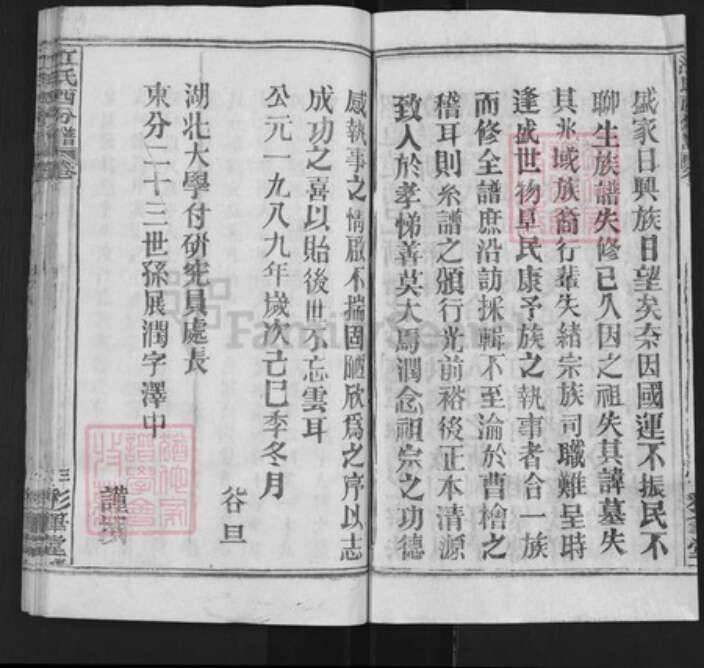 盛家日興族日望矣奈因國運不振民不
聊生族譜失修已久因之祖失其諱墓失
其兆域族裔行輩失緒宗族司職難呈時
逢盛世物阜民康予族之執事者合一族
而修全譜庶沿訪採輯不至淪於曹檜之
稽耳則糸譜之頒行光前裕後正本清源
致人於孝悌善莫大焉潤念祖宗之功德
感執事之情啟不揣固陋欣爲之序以志
成功之喜以貽後世不忘雲耳
公元一九八九年歲次己巳季冬月
谷旦
湖北大學付研究員處長
東分二十三世孫展潤字澤中
謹
氏西分譜
卷
三彩筆堂
FamilySearch